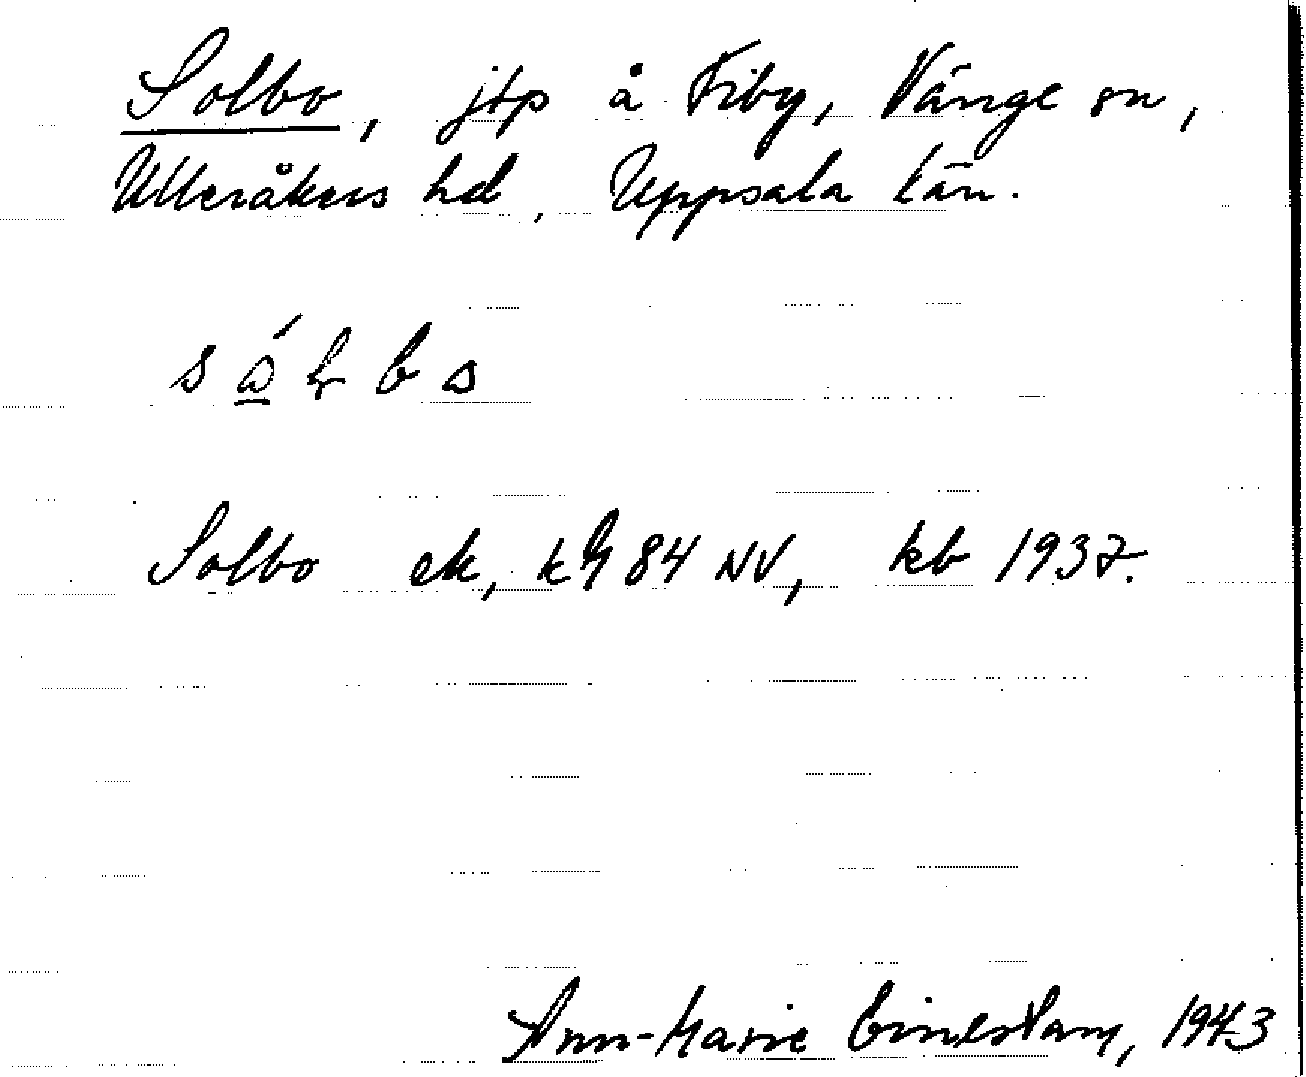 Solbo, jtp å Fiby, Vänge sn,
Ulleråkers hd, Uppsala län.
Solbo ek, kbl 84 NV, kb 1937.
Ann-Marie 1943